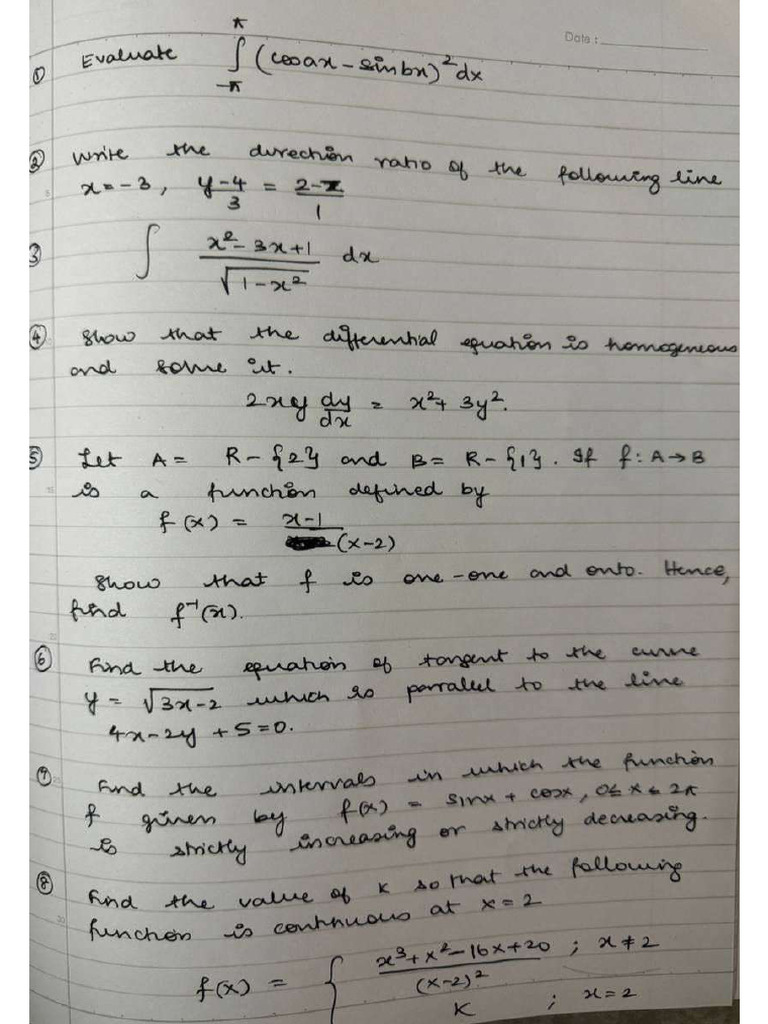 Date :
① Evaluate ∫_{-π}^{π} (cosax - sinbx)² dx
② Write the direction ratio of the following line
x = -3, (y-4)/3 = (2-z)/1
③ ∫ (x² - 3x + 1)/√(1-x²) dx
④ Show that the differential equation is homogeneous
and solve it.
2xy dy/dx = x² + 3y².
⑤ Let A = R - {2} and B = R - {1}. If f: A → B
is a function defined by
f(x) = (x-1)/(x-2)
Show that f is one-one and onto. Hence,
find f⁻¹(x).
⑥ Find the equation of tangent to the curve
y = √(3x-2) which is parralel to the line
4x - 2y + 5 = 0.
⑦ Find the intervals in which the function
f given by f(x) = sinx + cosx, 0 ≤ x ≤ 2π
is strictly increasing or strictly decreasing.
⑧ Find the value of K so that the following
function is continuous at x = 2
f(x) = { (x³ + x² - 16x + 20)/(x-2)² ; x ≠ 2
K ; x = 2